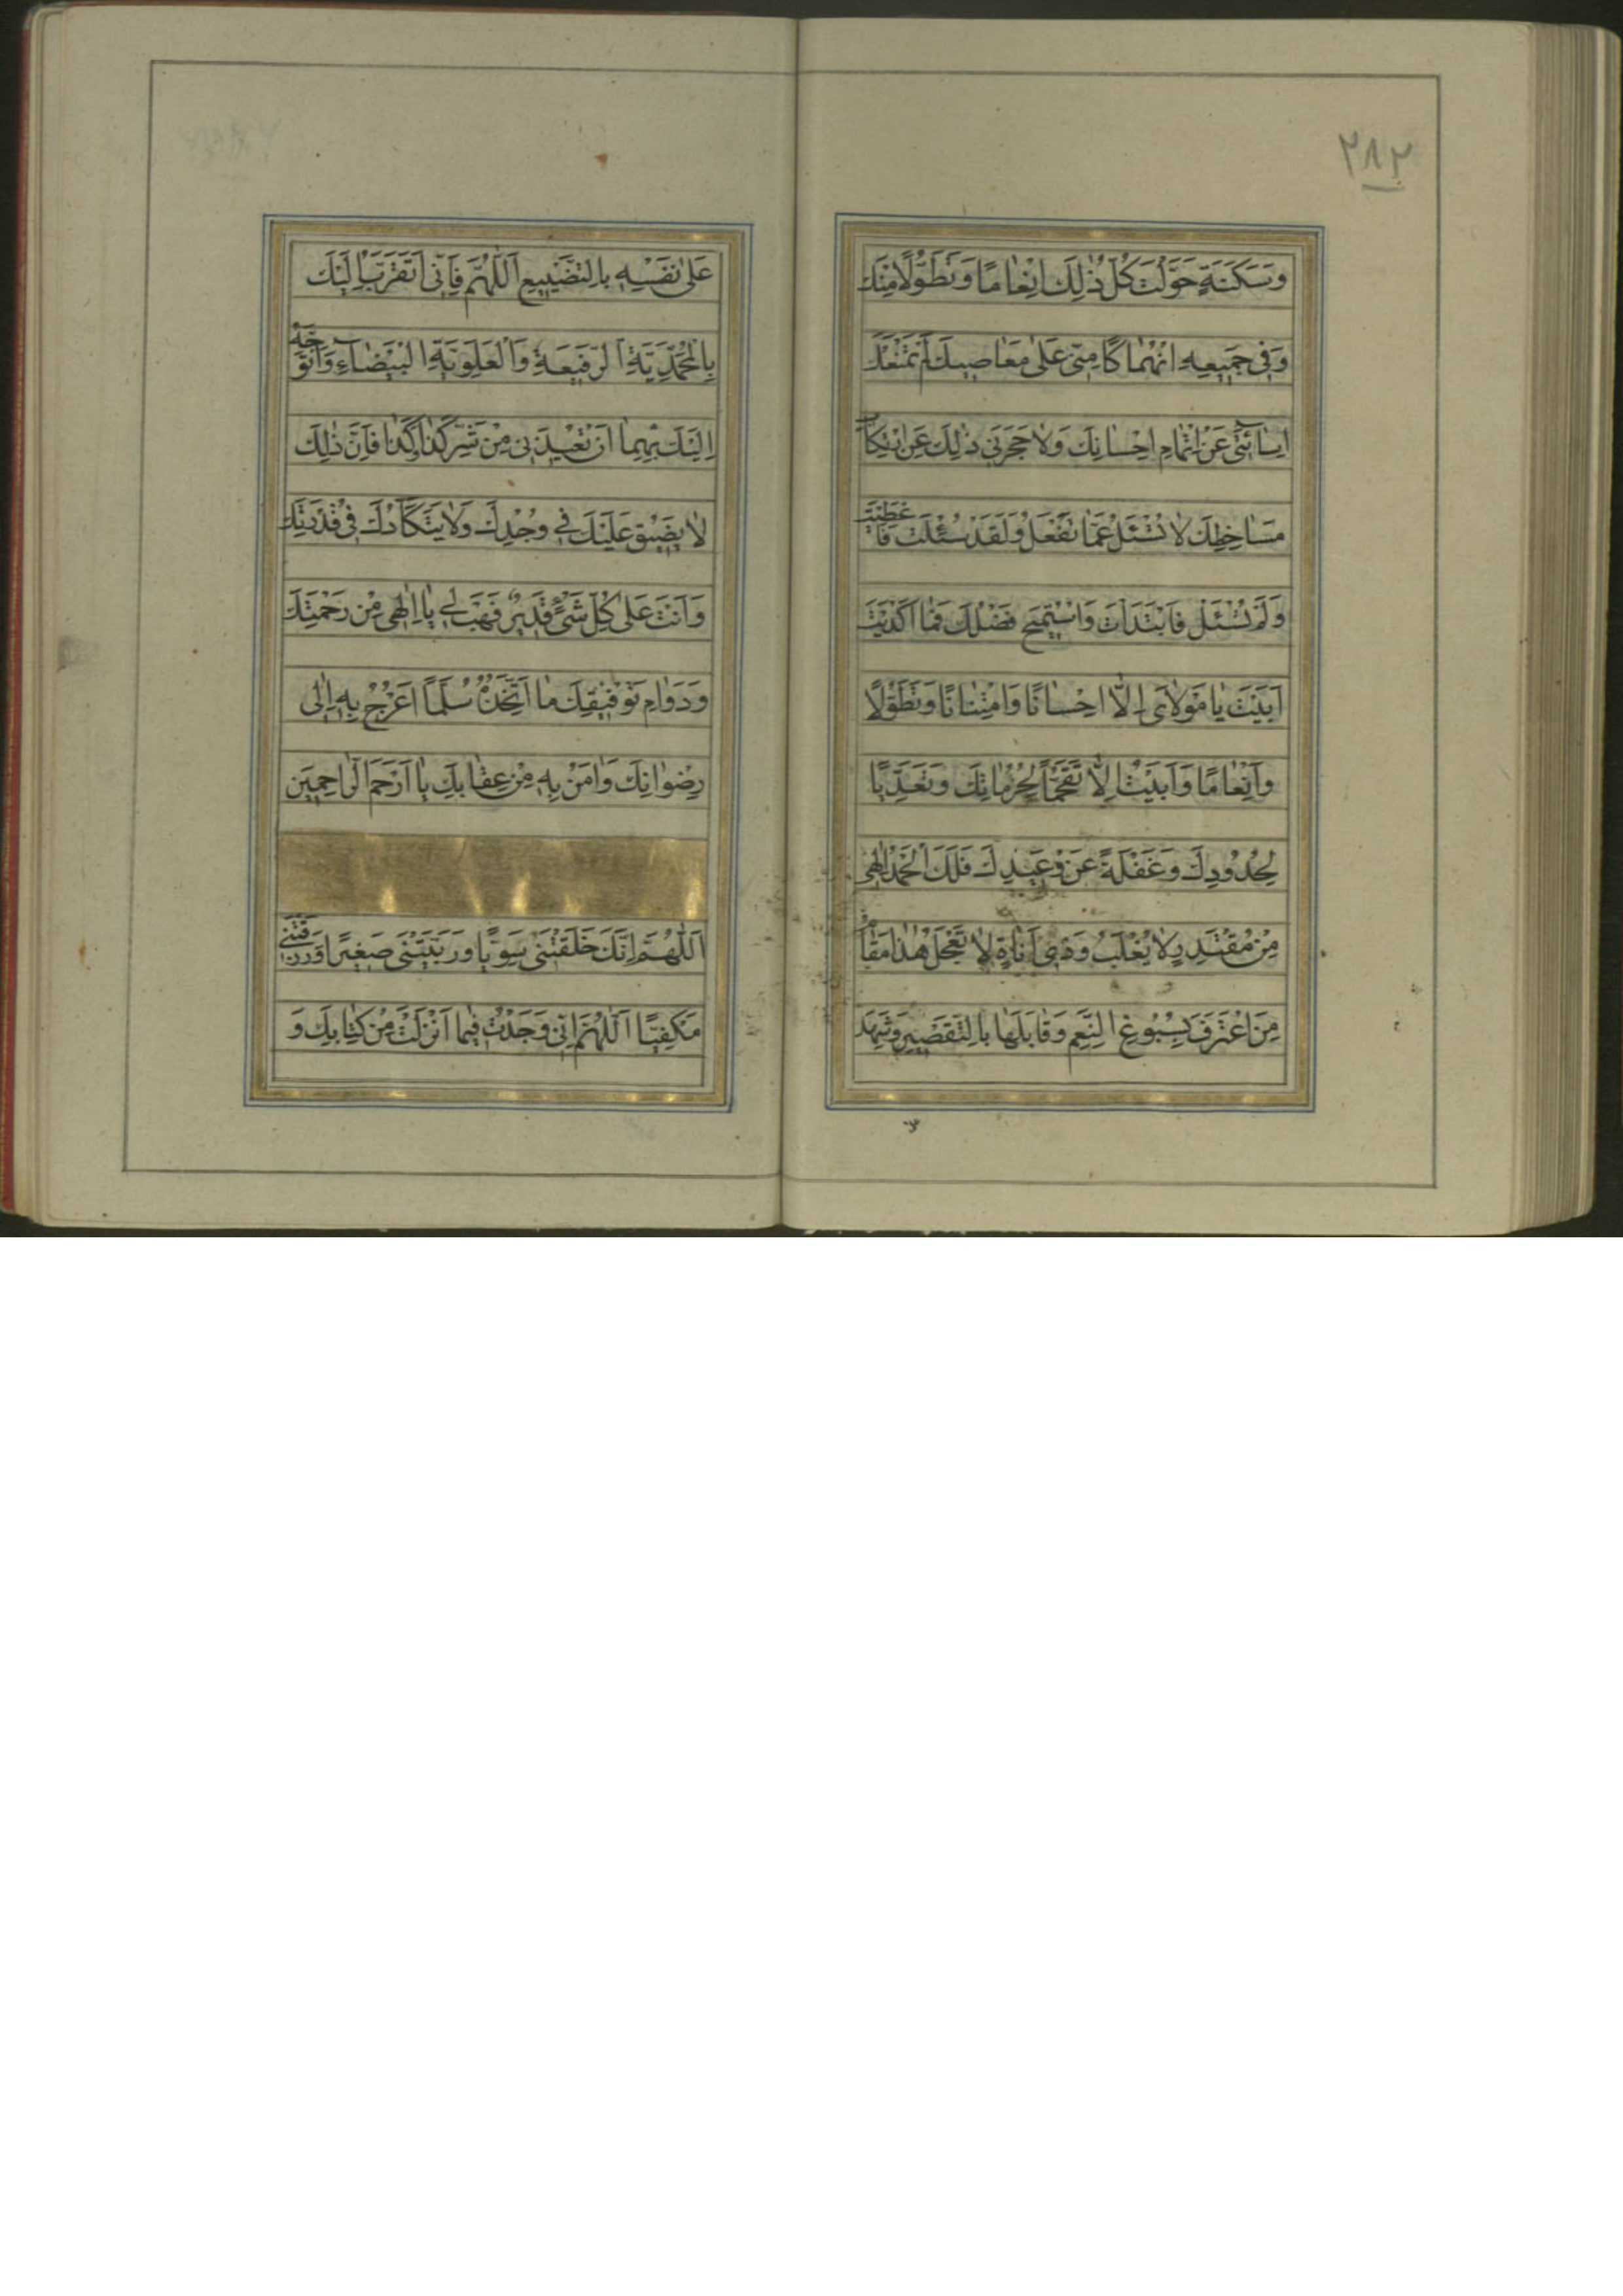 ۲۸۲
وَسَكَنَةٍ حَوَّلْتَ كُلُّ ذٰلِكَ اِنْعٰامًا وَتَطَوُّلًا مِنْكَ
وَفِى جَمِيعِهِ انْهِمٰاكًا مِنّى عَلٰى مَعٰاصِيكَ لَمْ تَمْنَعْكَ
اِسٰائَتِى عَنْ اِتْمٰامِ اِحْسٰانِكَ وَلاٰ حَجَرَنِى ذٰلِكَ عَنِ ارْتِكٰابِ
مَسٰاخِطِكَ لاٰ تُسْئَلُ عَمّٰا تَفْعَلُ وَلَقَدْ سُئِلْتَ فَاَعْطَيْتَ
وَلَمْ تُسْئَلْ فَابْتَدَاْتَ وَاسْتُمِيحَ فَضْلُكَ فَمٰا اَكْدَيْتَ
اَبَيْتَ يٰا مَوْلاٰىَ اِلّٰا اِحْسٰانًا وَامْتِنٰانًا وَتَطَوُّلًا
وَاِنْعٰامًا وَاَبَيْتُ اِلّٰا تَقَحُّمًا لِحُرُمٰاتِكَ وَتَعَدِّيًا
لِحُدُودِكَ وَغَفْلَةً عَنْ وَعِيدِكَ فَلَكَ الْحَمْدُ اِلٰهِى
مِنْ مُقْتَدِرٍ لاٰ يُغْلَبُ وَذِى اَنٰاةٍ لاٰ تَعْجَلُ هٰذٰا مَقٰامُ
مَنِ اعْتَرَفَ بِسُبُوغِ النِّعَمِ وَقٰابَلَهٰا بِالتَّقْصِيرِ وَشَهِدَ
عَلٰى نَفْسِهِ بِالتَّضْيِيعِ اَللّٰهُمَّ فَاِنِّى اَتَقَرَّبُ اِلَيْكَ
بِالْمُحَمَّدِيَّةِ الرَّفِيعَةِ وَالْعَلَوِيَّةِ الْبَيْضٰاءِ وَاَتَوَجَّهُ
اِلَيْكَ بِهِمٰا اَنْ تُعِيذَنِى مِنْ شَرِّ كَذٰا وَكَذٰا فَاِنَّ ذٰلِكَ
لاٰ يَضِيقُ عَلَيْكَ فِى وُجْدِكَ وَلاٰ يَتَكَأَّدُكَ فِى قُدْرَتِكَ
وَاَنْتَ عَلٰى كُلِّ شَىْءٍ قَدِيرٌ فَهَبْ لِى يٰا اِلٰهِى مِنْ رَحْمَتِكَ
وَدَوٰامِ تَوْفِيقِكَ مٰا اَتَّخِذُهُ سُلَّمًا اَعْرُجُ بِهِ اِلٰى
رِضْوٰانِكَ وَاٰمَنُ بِهِ مِنْ عِقٰابِكَ يٰا اَرْحَمَ الرّٰاحِمِينَ
اَللّٰهُمَّ اِنَّكَ خَلَقْتَنِى سَوِيًّا وَرَبَّيْتَنِى صَغِيرًا وَرَزَقْتَنِى
مَكْفِيًّا اَللّٰهُمَّ اِنِّى وَجَدْتُ فِيمٰا اَنْزَلْتَ مِنْ كِتٰابِكَ وَ